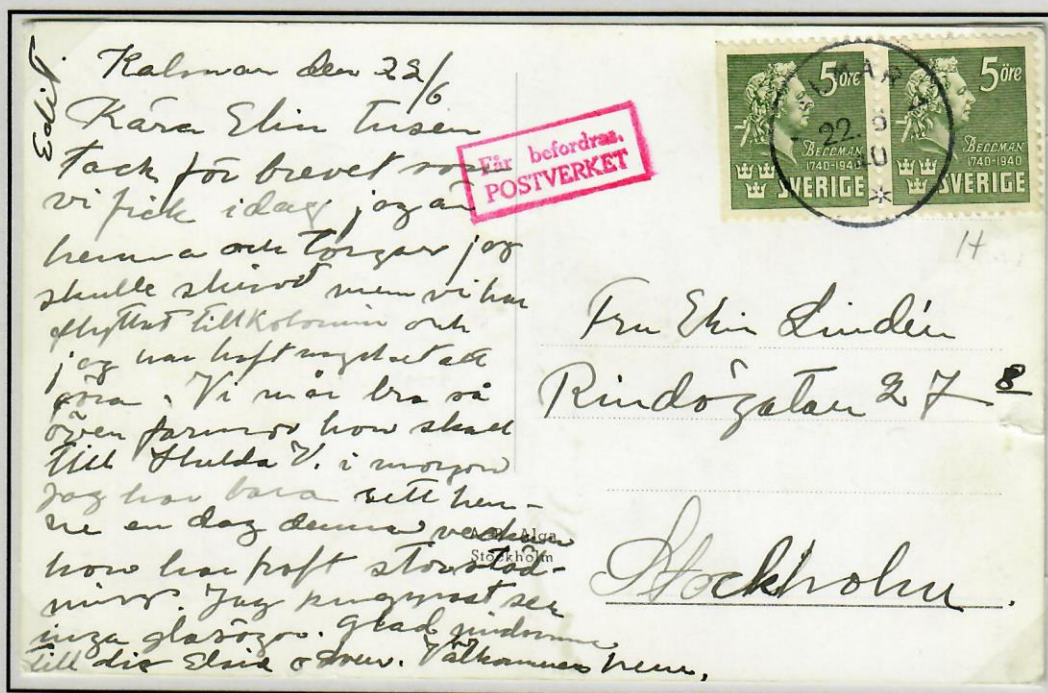 Edit.
Kalmar den 22/6
Kära Elin tusen
tack för brevet som
vi fick idag jag är
hemma och
skulle men vi har
flyttat till Kolonin och
jag har haft mycket att
göra. Vi mår bra så
även farmor hon skall
till Hulda V. i morgon
jag har bara sett hen-
ne en dag denna veckan
hon har haft storstäd-
ning. Jag ser
inga glasögon. Glad midsommar
till dig Elsie o Sven. Välkommen hem.
Får befordras.
POSTVERKET
5 öre
BELLMAN
1740-1940
SVERIGE
5 öre
BELLMAN
1740-1940
SVERIGE
KALMAR
22. 6
40
Fru Elin Lindén
Rindögatan 27 8
Stockholm.
Stockholm